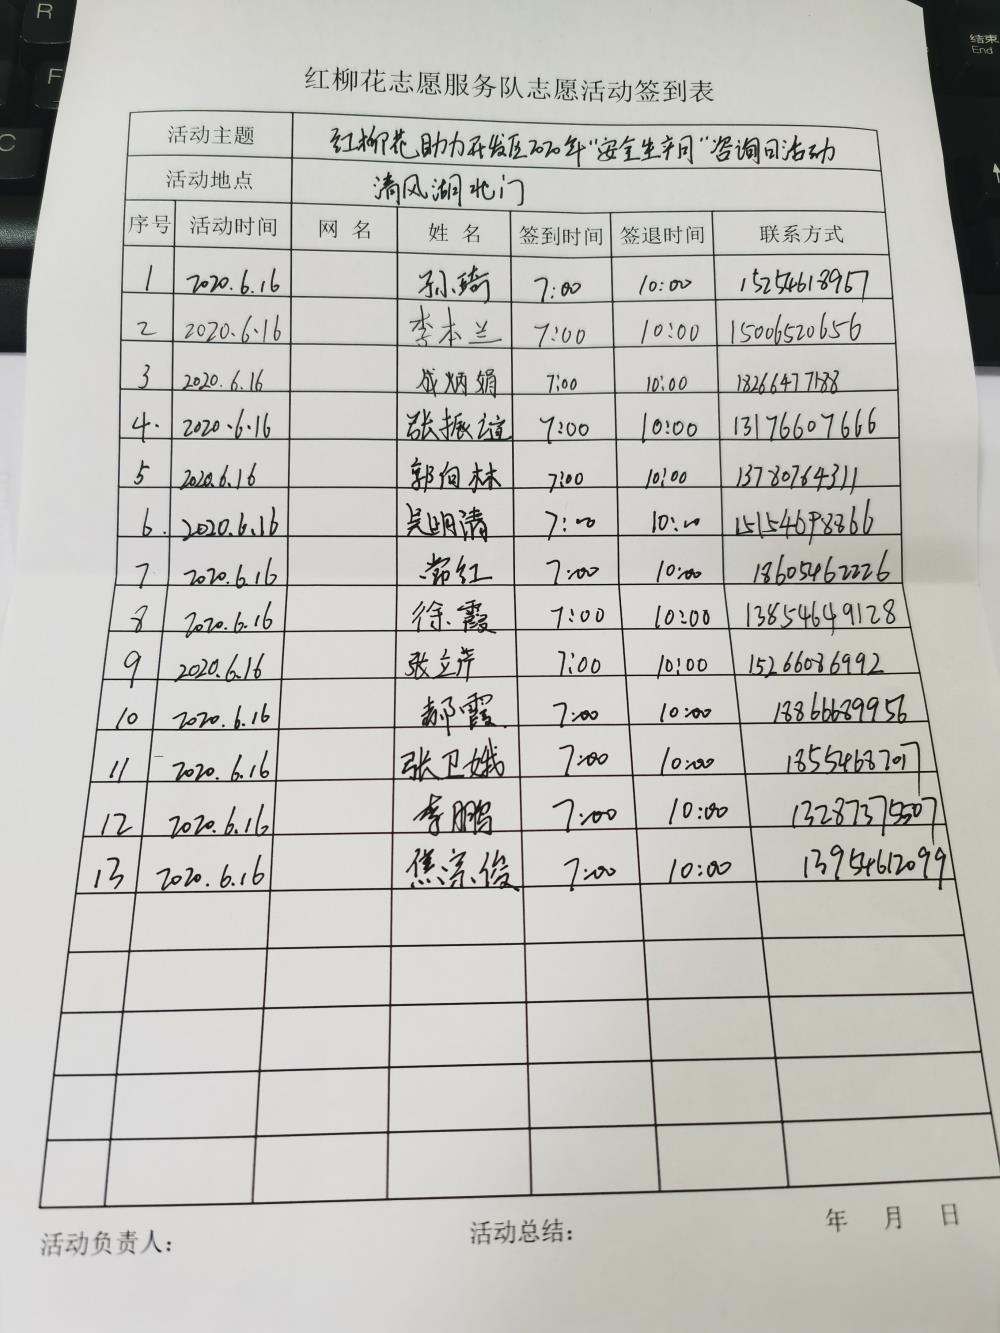 红柳花志愿服务队志愿活动签到表
活动主题 红柳花助力开发区2020年"安全生产月"咨询日活动
活动地点 清风湖北门
序号 活动时间 网名 姓名 签到时间 签退时间 联系方式
1 2020.6.16 孙琦 7:00 10:00 15254618967
2 2020.6.16 李本兰 7:00 10:00 15006520656
3 2020.6.16 成炳娟 7:00 10:00 18266477188
4. 2020.6.16 张振 7:00 10:00 13176607666
5 2020.6.16 郭向林 7:00 10:00 13780764311
6. 2020.6.16 吴明清 7:00 10:00
7 2020.6.16 常红 7:00 10:00 18605462226
8 2020.6.16 徐霞 7:00 10:00 13854649128
9 2020.6.16 张立芹 7:00 10:00 15266086992
10 2020.6.16 郝霞 7:00 10:00 18866689956
11 2020.6.16 张卫娥 7:00 10:00
12 2020.6.16 李鹏 7:00 10:00 13287375507
13 2020.6.16 焦俊 7:00 10:00 13954612099
活动负责人: 活动总结: 年 月 日
R
F
C
结束
End